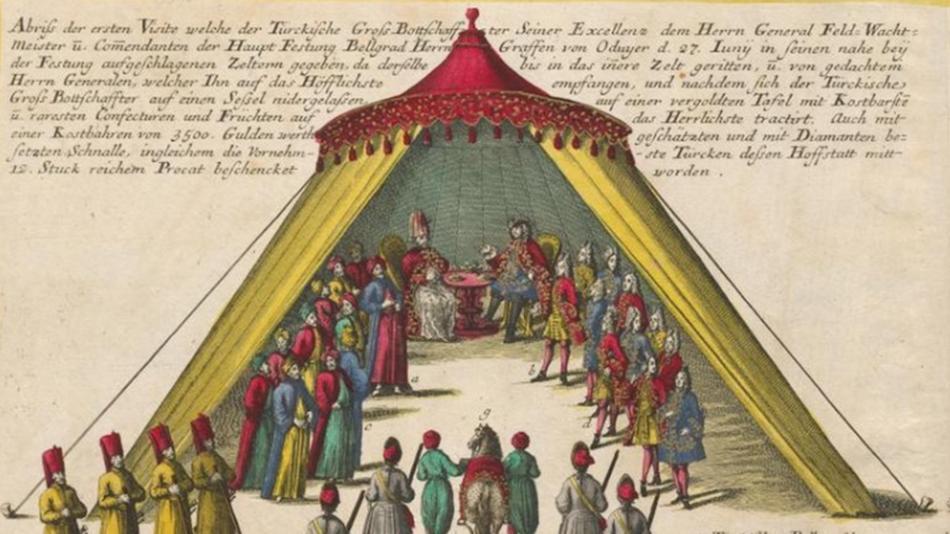 Abriss der ersten Visite welche der Türckische Gross Bottschaffter Seiner Excellenz dem Herrn General Feld-Wacht-
Meister ū. Com̄endanten der Haupt Festung Bellgrad Herrn Graffen von Oduyer d. 27. Iunij in seinen nahe beij
der Festung aufgeschlagenen Zeltern gegeben, da derselbe bis in das iñere Zelt geritten, ū. von gedachtem
Herrn Generalen, welcher Ihn auf das Höfflichste empfangen, und nachdem sich der Türckische
Gross Bottschaffter auf einen Sessel nidergelassen, auf einer vergoldten Tafel mit Kostbarste
ū. raresten Confecturen und Früchten auf das Herrlichste tractirt. Auch mit
einer Kostbahren von 3500. Gulden werth geschätzten und mit Diamanten be-
setzten Schnalle, ingleichem die Vornehm-ste Türcken dessen Hoffstatt mitt
12. Stuck reichem Procat beschencket worden.
a
b
c
d
g